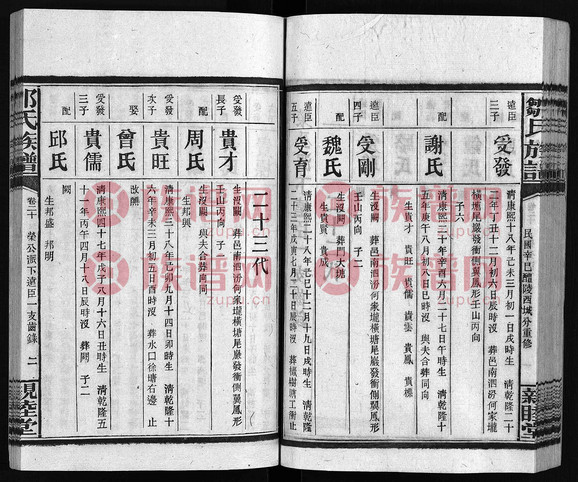 鄒氏族譜
民國辛巳醴陵西城分重修
親睦堂
遠臣
三子
受發
清康熙十八年己未三月初一日戌時生 清乾隆二十
二年丁丑十二月初六日辰時沒 葬邑南泗汾何家壠
橫塘尾嚴發衝側翼鳳形壬山丙向
子六
配
謝氏
清康熙二十二年癸酉六月二十七日午時生 清乾隆十
五年庚午八月初八日巳時沒 與夫合葬同向
生貴才 貴旺 貴儒 貴雲 貴鳳 貴標
遠臣
四子
受剛
生沒闕 葬邑南泗汾何家壠橫塘尾嚴發衝側翼鳳形
壬山丙向 子二
配
魏氏
生沒闕 葬門大塘
生貴賢 貴成
遠臣
五子
受育
清康熙二十八年己巳十二月十九日戌時生 清乾隆
二十三年戊寅七月二十日辰時沒 葬
二十三代
受發
長子
貴才
生沒闕 葬邑南泗汾何家壠橫塘尾嚴發衝側翼鳳形
壬山丙向 子一
配
周氏
生沒闕 與夫合葬同向
生邦興
受發
次子
貴旺
清康熙三十八年己卯九月十四日卯時生 清乾隆十
六年辛未三月初五日酉時沒 葬水口徐塘右邊 止
娶
曾氏
改醮
受發
三子
貴儒
清康熙四十七年戊子八月十六日丑時生 清乾隆五
十一年丙午四月十八日辰時沒 葬闕 子二
配
邱氏
闕
生邦盛 邦明
鄒氏族譜
卷二十 榮公派下遠臣一支齒錄 二
親睦堂
族谱网
zupu.cn